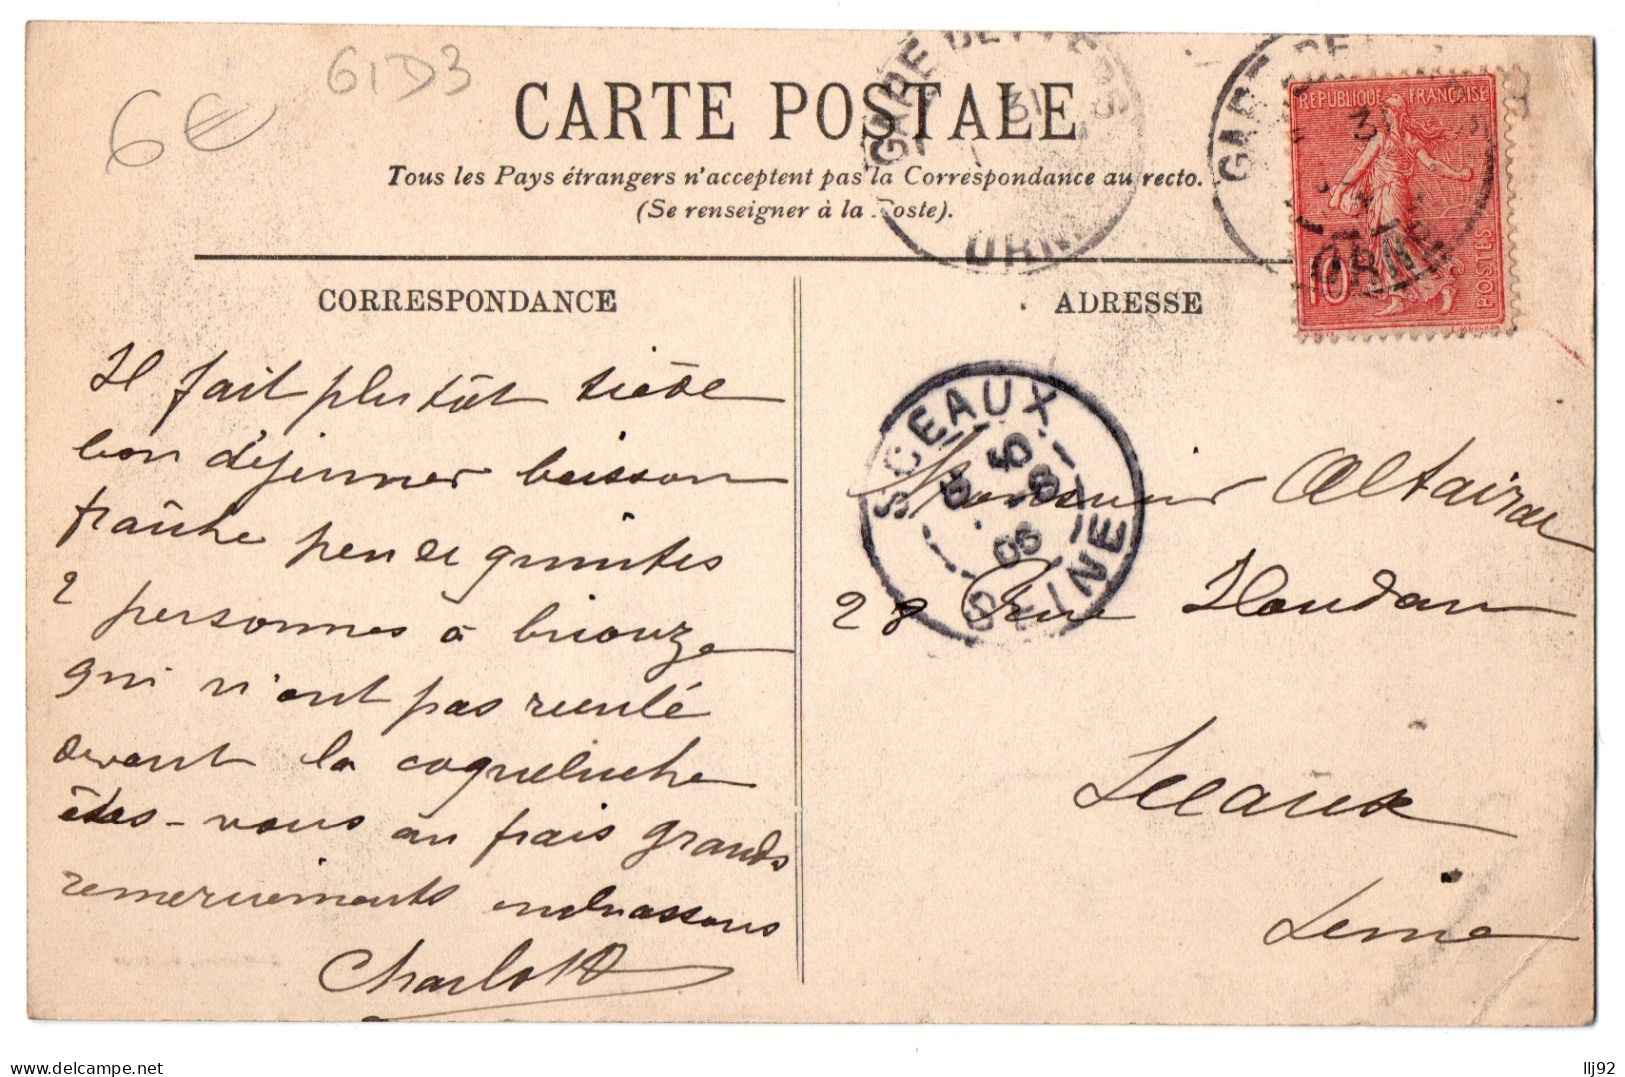 6€
61D3
CARTE POSTALE
Tous les Pays étrangers n'acceptent pas la Correspondance au recto.
(Se renseigner à la Poste).
GARE DE ORNE
31
GARE DE ORNE
RÉPUBLIQUE FRANÇAISE
10
POSTES
CORRESPONDANCE
Il fait plutôt tiède
bon déjeuner boisson
fraîche peu de
2 personnes à briouze
qui n'ont pas reculé
devant la coqueluche
êtes-vous au frais grands
remerciements embrassons
Charlotte
ADRESSE
SCEAUX
SEINE
Monsieur
28 Rue Houdan
Sceaux
Seine
llj92